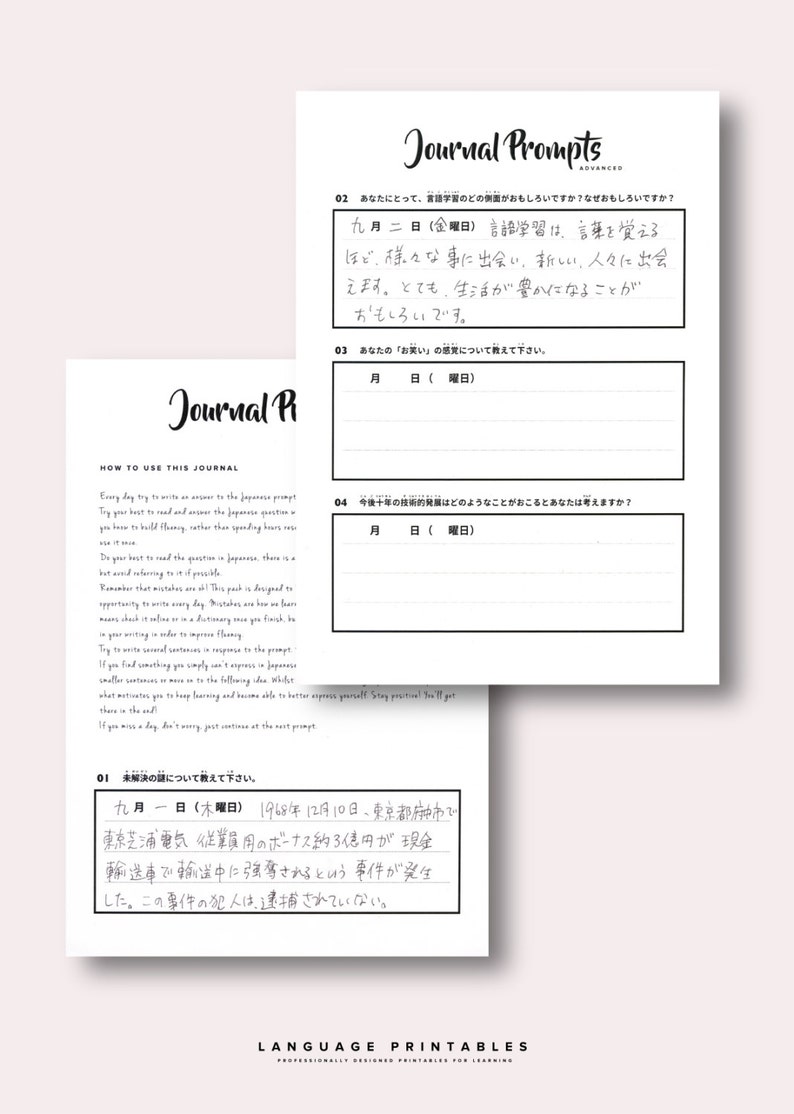 Journal Prompts
ADVANCED
02 あなたにとって、言語学習のどの側面がおもしろいですか？なぜおもしろいですか？
九月二日（金曜日） 言語学習は、言葉を覚える
ほど、様々な事に出会い、新しい、人々に出会
えます。とても、生活が豊かになることが
おもしろいです。
03 あなたの「お笑い」の感覚について教えて下さい。
月 日（ 曜日）
04 今後十年の技術的発展はどのようなことがおこるとあなたは考えますか？
月 日（ 曜日）
Journal P
HOW TO USE THIS JOURNAL
Every day try to write an answer to the Japanese prompt
Try your best to read and answer the Japanese question w
you know to build fluency, rather than spending hours rese
use it once.
Do your best to read the question in Japanese, there is a
but avoid referring to it if possible.
Remember that mistakes are ok! This pack is designed to
opportunity to write every day. Mistakes are how we learn
means check it online or in a dictionary once you finish, bu
in your writing in order to improve fluency.
Try to write several sentences in response to the prompt.
If you find something you simply can't express in Japanese
smaller sentences or move on to the following idea. Whilst
what motivates you to keep learning and become able to better express yourself. Stay positive! You'll get
there in the end!
If you miss a day, don't worry, just continue at the next prompt.
01 未解決の謎について教えて下さい。
九月一日（木曜日） 1968年12月10日、東京都府中市で
東京芝浦電気 従業員用のボーナス約3億円が 現金
輸送車で輸送中に強奪されるという 事件が発生
した。この事件の犯人は、逮捕されていない。
LANGUAGE PRINTABLES
PROFESSIONALLY DESIGNED PRINTABLES FOR LEARNING